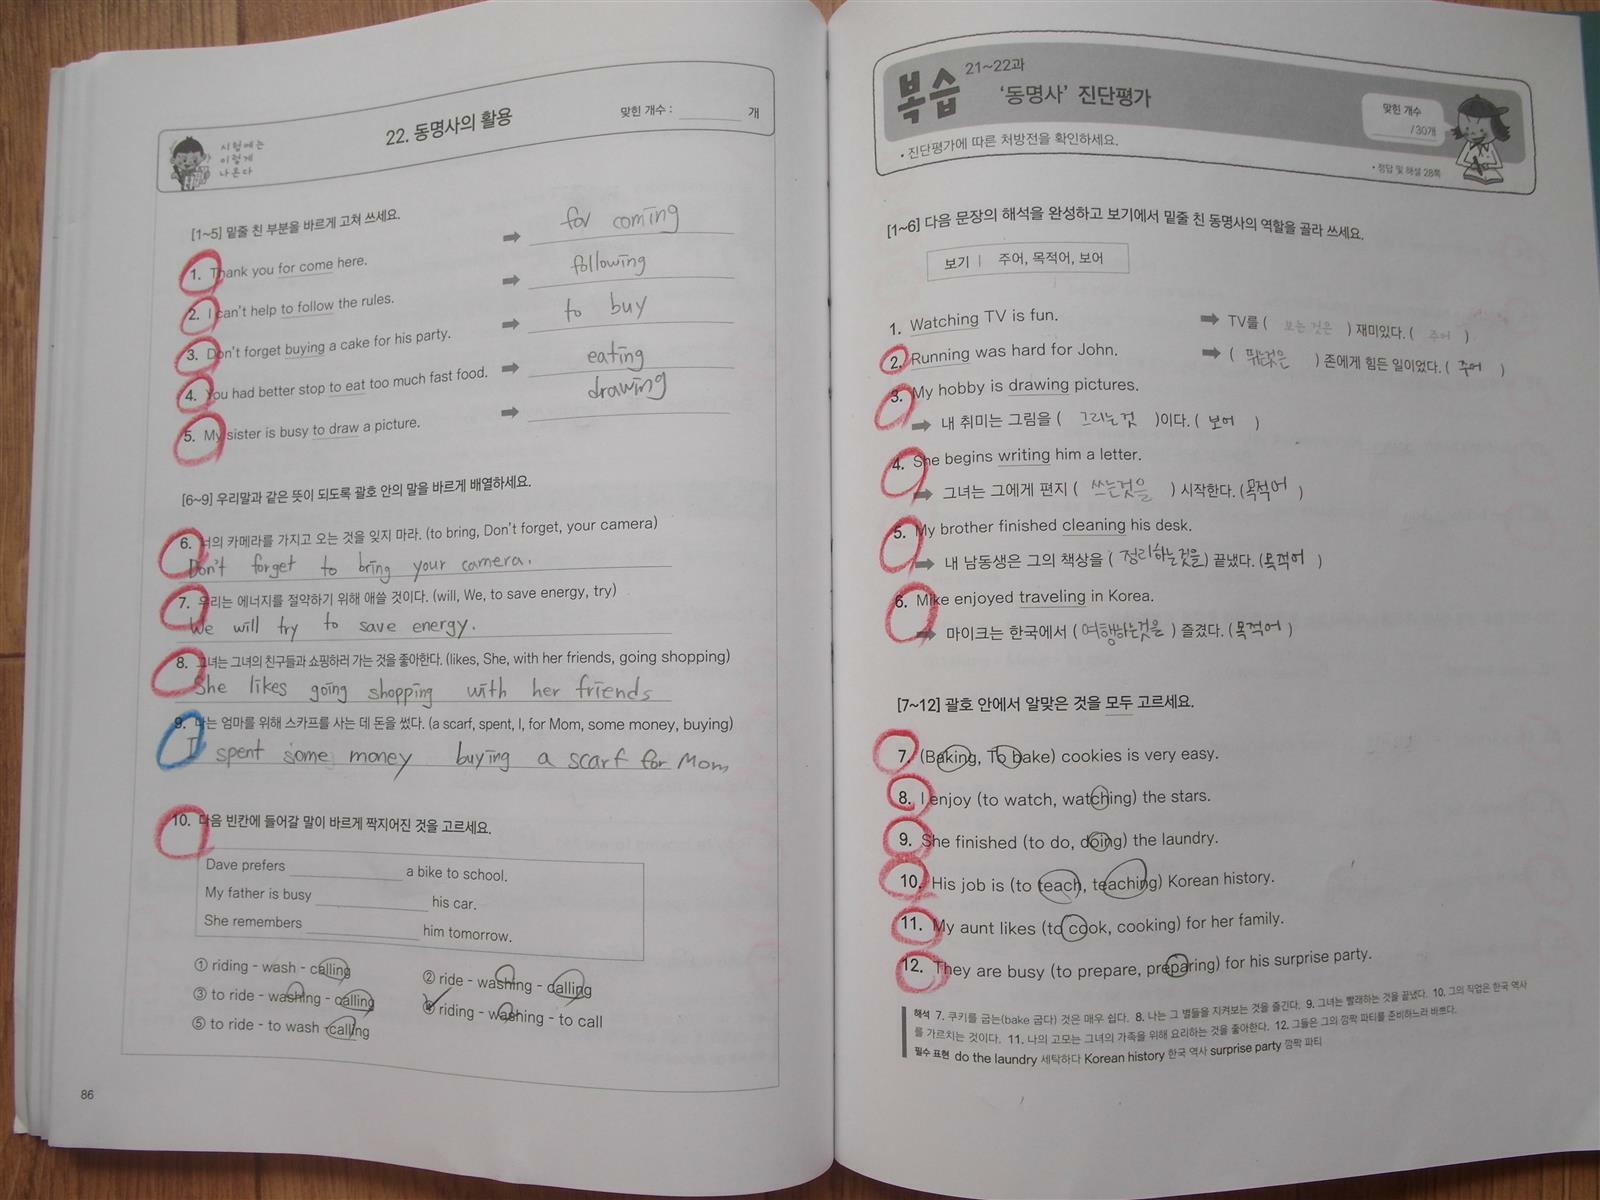 시험에는
이렇게
나온다
22. 동명사의 활용
맞힌 개수 : ______ 개
[1~5] 밑줄 친 부분을 바르게 고쳐 쓰세요.
1. Thank you for come here. ➡ for coming
2. I can't help to follow the rules. ➡ following
3. Don't forget buying a cake for his party. ➡ to buy
4. You had better stop to eat too much fast food. ➡ eating
5. My sister is busy to draw a picture. ➡ drawing
[6~9] 우리말과 같은 뜻이 되도록 괄호 안의 말을 바르게 배열하세요.
6. 너의 카메라를 가지고 오는 것을 잊지 마라. (to bring, Don't forget, your camera)
Don't forget to bring your camera.
7. 우리는 에너지를 절약하기 위해 애쓸 것이다. (will, We, to save energy, try)
We will try to save energy.
8. 그녀는 그녀의 친구들과 쇼핑하러 가는 것을 좋아한다. (likes, She, with her friends, going shopping)
She likes going shopping with her friends
9. 나는 엄마를 위해 스카프를 사는 데 돈을 썼다. (a scarf, spent, I, for Mom, some money, buying)
I spent some money buying a scarf for Mom
10. 다음 빈칸에 들어갈 말이 바르게 짝지어진 것을 고르세요.
Dave prefers ______ a bike to school.
My father is busy ______ his car.
She remembers ______ him tomorrow.
① riding - wash - calling
② ride - washing - calling
③ to ride - washing - calling
④ riding - washing - to call
⑤ to ride - to wash - calling
86
복습 21~22과
'동명사' 진단평가
맞힌 개수
/30개
• 진단평가에 따른 처방전을 확인하세요.
• 정답 및 해설 28쪽
[1~6] 다음 문장의 해석을 완성하고 보기에서 밑줄 친 동명사의 역할을 골라 쓰세요.
보기 | 주어, 목적어, 보어
1. Watching TV is fun. ➡ TV를 ( 보는 것은 ) 재미있다. ( 주어 )
2. Running was hard for John. ➡ ( 뛰는것은 ) 존에게 힘든 일이었다. ( 주어 )
3. My hobby is drawing pictures.
➡ 내 취미는 그림을 ( 그리는 것 )이다. ( 보어 )
4. She begins writing him a letter.
➡ 그녀는 그에게 편지 ( 쓰는것을 ) 시작한다. ( 목적어 )
5. My brother finished cleaning his desk.
➡ 내 남동생은 그의 책상을 ( 정리하는것을 ) 끝냈다. ( 목적어 )
6. Mike enjoyed traveling in Korea.
➡ 마이크는 한국에서 ( 여행하는것을 ) 즐겼다. ( 목적어 )
[7~12] 괄호 안에서 알맞은 것을 모두 고르세요.
7. (Baking, To bake) cookies is very easy.
8. I enjoy (to watch, watching) the stars.
9. She finished (to do, doing) the laundry.
10. His job is (to teach, teaching) Korean history.
11. My aunt likes (to cook, cooking) for her family.
12. They are busy (to prepare, preparing) for his surprise party.
해석 7. 쿠키를 굽는(bake 굽다) 것은 매우 쉽다. 8. 나는 그 별들을 지켜보는 것을 즐긴다. 9. 그녀는 빨래하는 것을 끝냈다. 10. 그의 직업은 한국 역사
를 가르치는 것이다. 11. 나의 고모는 그녀의 가족을 위해 요리하는 것을 좋아한다. 12. 그들은 그의 깜짝 파티를 준비하느라 바쁘다.
필수 표현 do the laundry 세탁하다 Korean history 한국 역사 surprise party 깜짝 파티